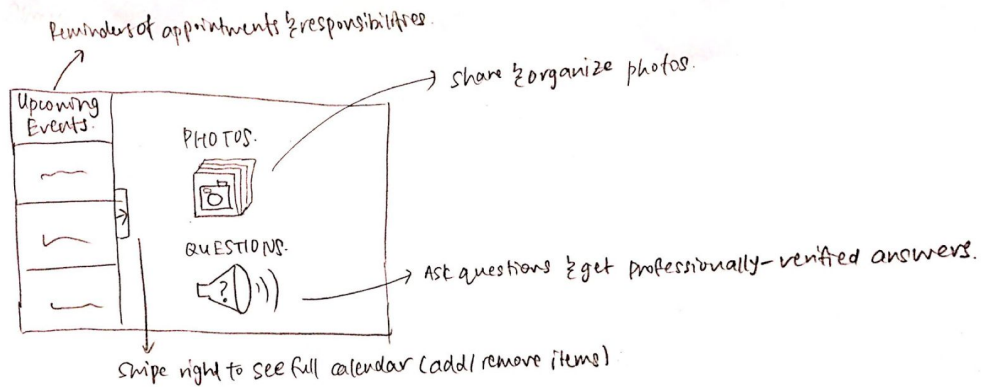 Reminders of appointments & responsibilities.
share & organize photos.
Upcoming
Events.
PHOTOS.
QUESTIONS.
?
Ask questions & get professionally-verified answers.
Swipe right to see full calendar (add/remove items)